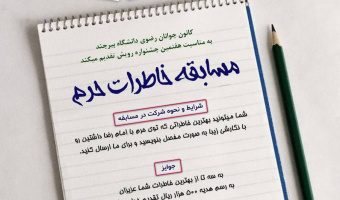 کانون جوانان رضوی دانشگاه بیرجند
به مناسبت هفتمین جشنواره رویش تقدیم میکند
مسابقه خاطرات حرم
شرایط و نحوه شرکت در مسابقه
شما میتونید بهترین خاطراتی که توی حرم با امام رضا داشتین رو
با نگارشی زیبا به صورت مفصل بنویسید و برای ما ارسال کنید.
جوایز
به سه تا از بهترین خاطرات شما عزیزان
به رسم هدیه ۵۰۰ هزار ریال تقدیم